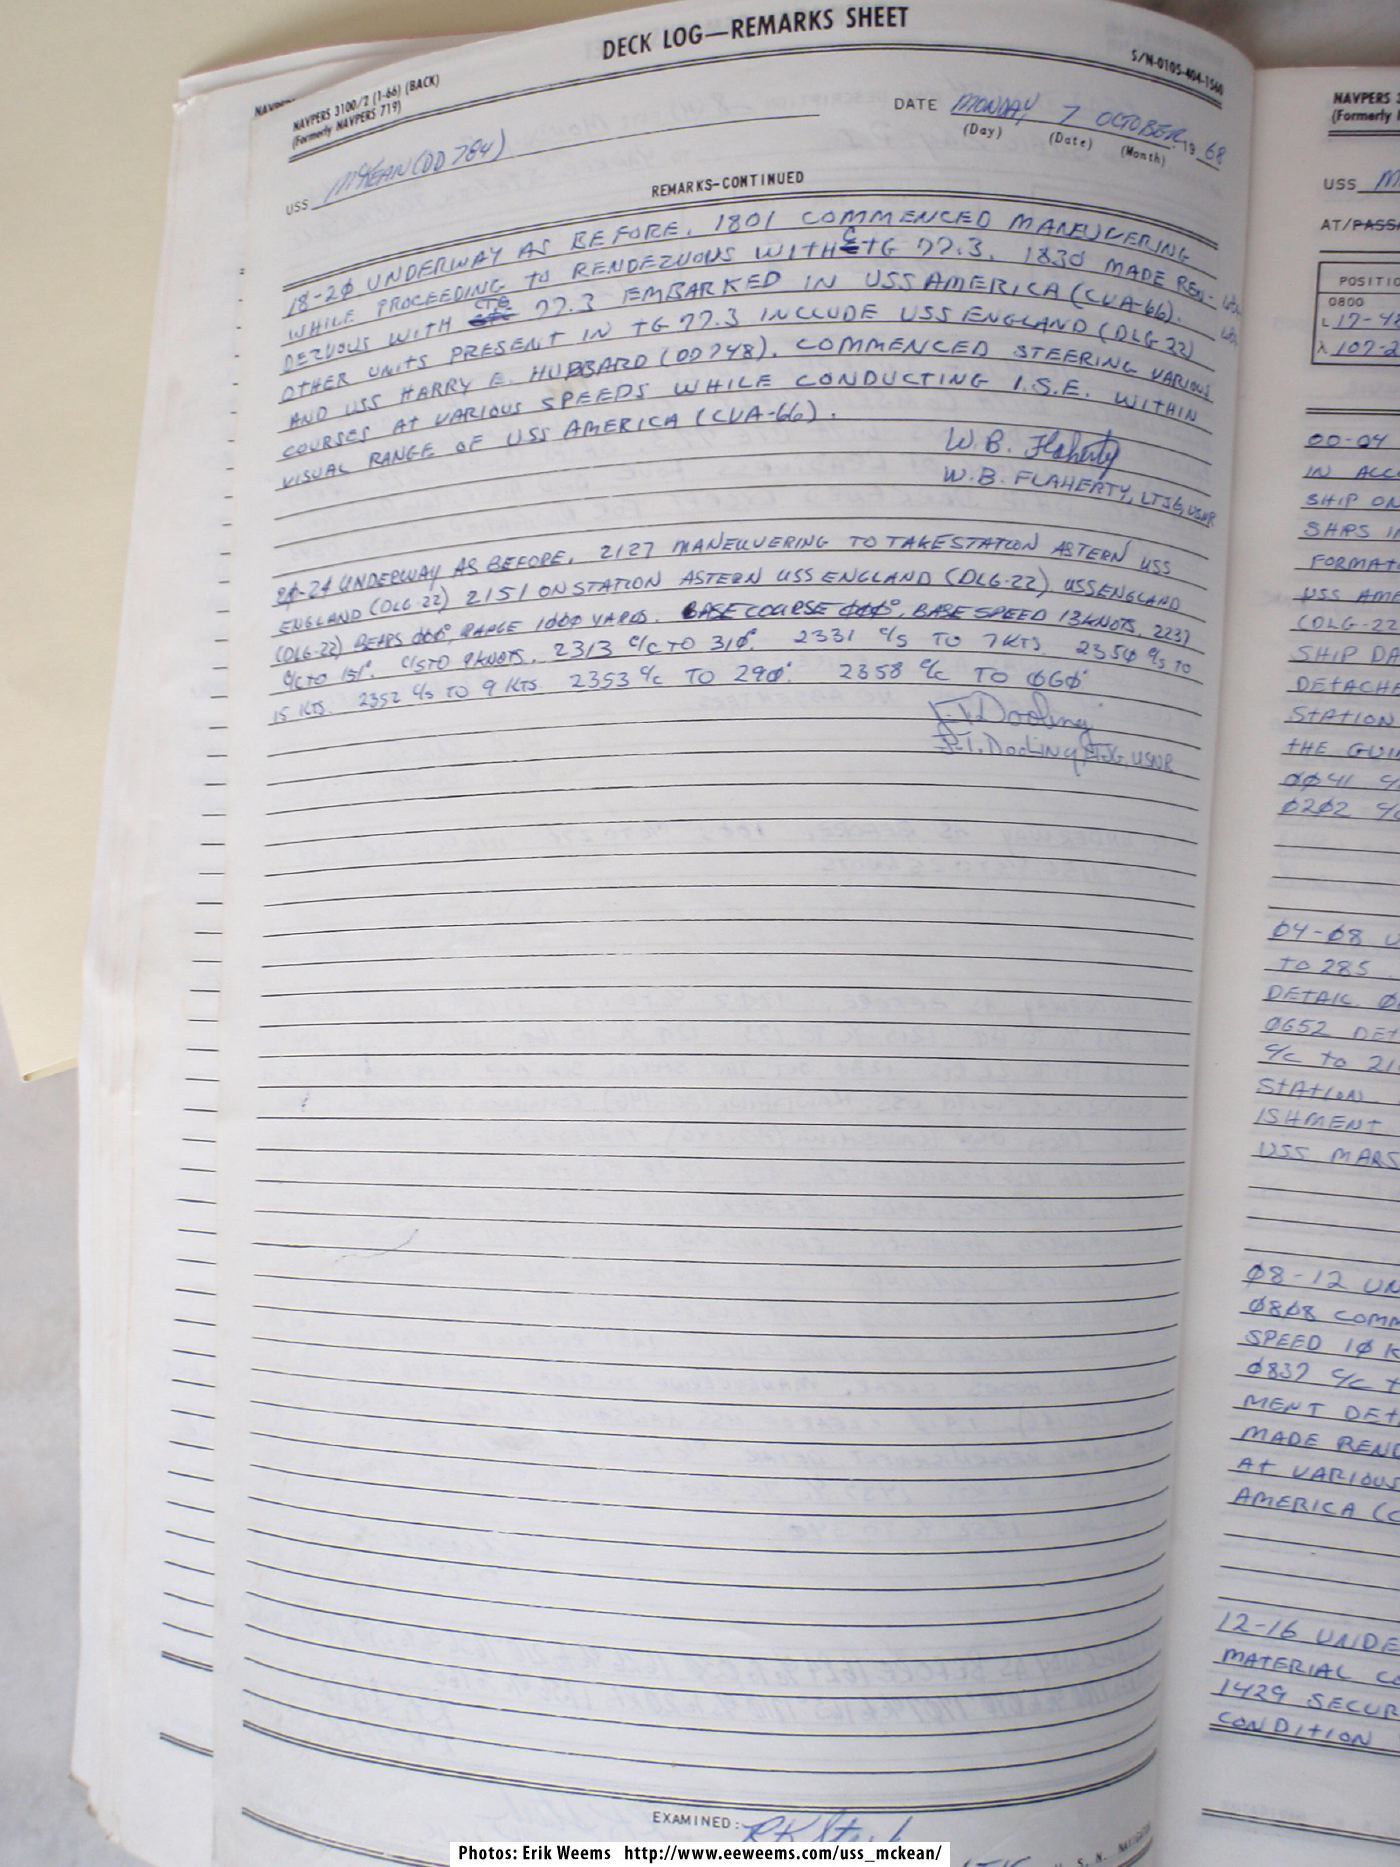 DECK LOG—REMARKS SHEET
NAVPERS 3100/2 (1-66) (BACK)
(Formerly NAVPERS 719)
S/N-0105-404-1560
DATE MONDAY 7 OCTOBER, 19 68
(Day) (Date) (Month)
USS McKEAN (DD 784)
REMARKS-CONTINUED
18-2Ø UNDERWAY AS BEFORE. 1801 COMMENCED MANEUVERING
WHILE PROCEEDING TO RENDEZVOUS WITH CTG 77.3. 1830 MADE REN-
DEZVOUS WITH CTG 77.3 EMBARKED IN USS AMERICA (CVA-66).
OTHER UNITS PRESENT IN TG 77.3 INCLUDE USS ENGLAND (DLG 22)
AND USS HARRY E. HUBBARD (DD 748). COMMENCED STEERING VARIOUS
COURSES AT VARIOUS SPEEDS WHILE CONDUCTING I.S.E. WITHIN
VISUAL RANGE OF USS AMERICA (CVA-66).
W.B. Flaherty
W.B. FLAHERTY, LTJG, USNR
2Ø-24 UNDERWAY AS BEFORE. 2127 MANEUVERING TO TAKE STATION ASTERN USS
ENGLAND (DLG-22) 2151 ON STATION ASTERN USS ENGLAND (DLG-22). USS ENGLAND
(DLG-22) BEARS ØØØ°, RANGE 1ØØØ YARDS. BASE COURSE ØØØ°, BASE SPEED 13 KNOTS. 2237
C/C TO 151°. C/S TO 9 KNOTS. 2313 C/C TO 31Ø°. 2331 C/S TO 7 KTS 235Ø C/S TO
15 KTS. 2352 C/S TO 9 KTS 2353 C/C TO 29Ø°. 2358 C/C TO Ø6Ø°
Dooling
Dooling LTJG, USNR
EXAMINED:
NAVPERS 3
(Formerly
USS
AT/PASS
POSITIO
0800
L 17-48
λ 107-2
00-04
IN ACC
SHIP ON
SHIPS IN
FORMAT
USS AME
(DLG-22
SHIP DA
DETACHE
STATION
THE GUI
ØØ41 C/
Ø2Ø2 C/
Ø4-Ø8 U
TO 285
DETAIL Ø
Ø652 DET
C/C TO 21
STATION.
ISHMENT
USS MARS
Ø8-12 UN
Ø8Ø8 COMM
SPEED 1Ø K
Ø837 C/C T
MENT DET
MADE REND
AT VARIOUS
AMERICA (C
12-16 UNDE
MATERIAL CO
1429 SECUR
CONDITION
Photos: Erik Weems http://www.eeweems.com/uss_mckean/